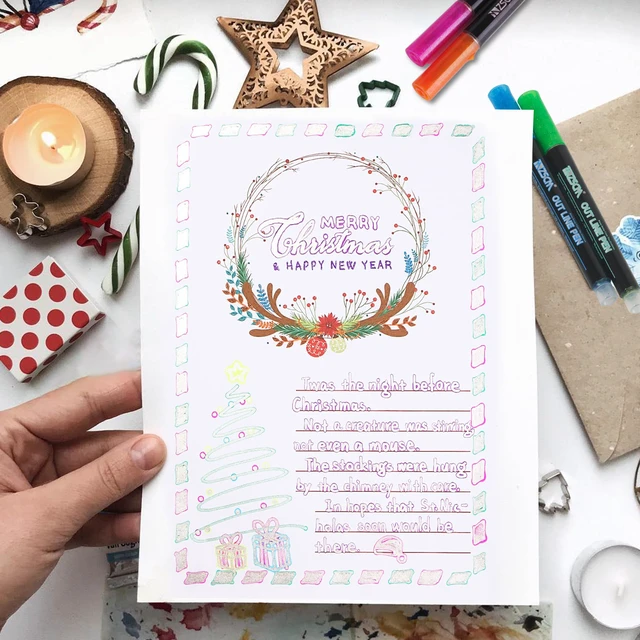 MERRY
Christmas
& HAPPY NEW YEAR
Twas the night before
Christmas.
Not a creature was stirring
not even a mouse.
The stockings were hung
by the chimney with care.
In hopes that St Nic-
holas soon would be
there.
OUT LINE PEN
OUT LINE PEN